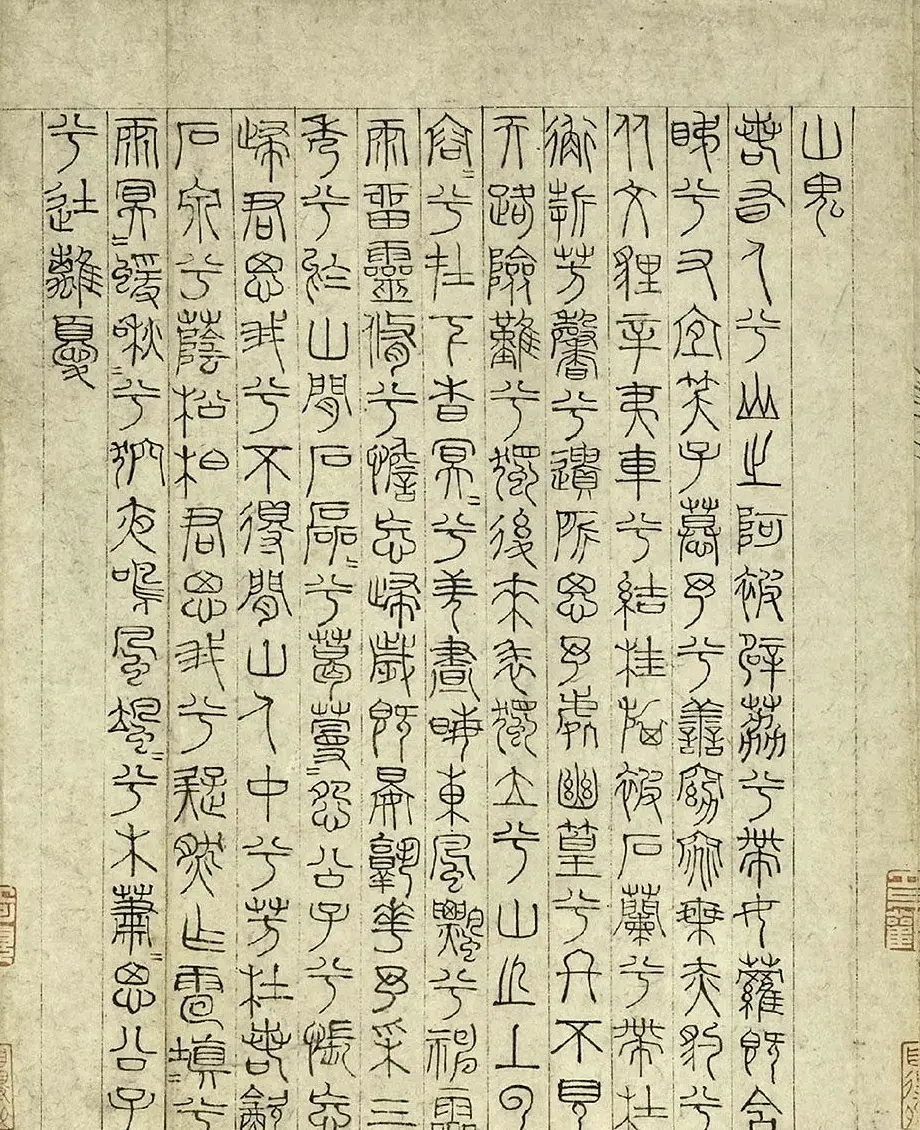 山鬼
若有人兮山之阿被薜荔兮帶女蘿既含
睇兮又宜笑子慕予兮善窈窕乘赤豹兮
从文貍辛夷車兮結桂旗被石蘭兮帶杜
衡折芳馨兮遺所思予處幽篁兮終不見
天路險難兮獨後來表獨立兮山之上云
容〻兮在下杳冥〻兮羌晝晦東風飄兮神靈
雨留靈脩兮憺忘歸歲既晏孰華予采三
秀兮於山間石磊〻兮葛蔓〻怨公子兮悵忘
歸君思我兮不得閒山人中兮芳杜若飲
石泉兮蔭松柏君思我兮疑然作雷填〻兮
雨冥〻蝯啾〻兮狖夜鳴風颯〻兮木蕭〻思公子
兮徒離憂